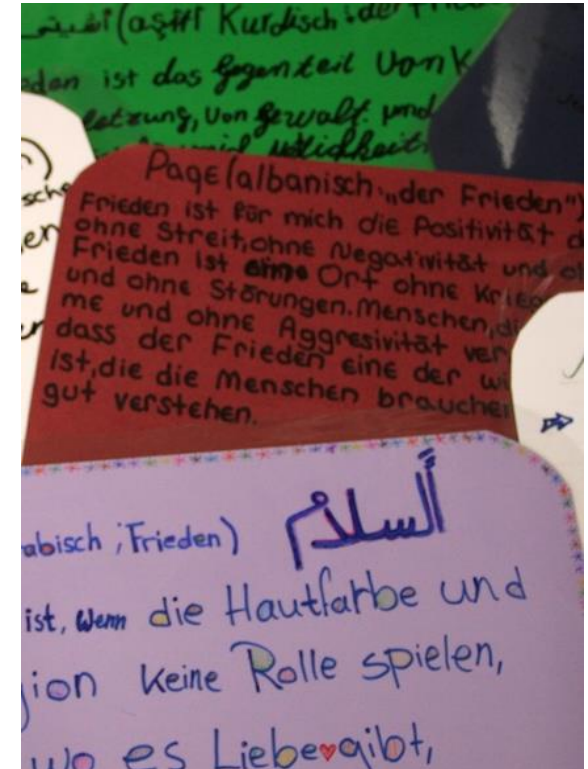 (aşitî Kurdisch: der Frieden
ist das Gegenteil von K
letzung, von Gewalt und
Page (albanisch „der Frieden")
Frieden ist für mich die Positivität d
ohne Streit, ohne Negativität und o
Frieden ist eine Ort ohne Krieg
und ohne Störungen. Menschen, di
me und ohne Aggresivität ver
dass der Frieden eine der wi
ist, die die Menschen brauchen
gut verstehen.
abisch ; Frieden) السلام
ist, wenn die Hautfarbe und
gion keine Rolle spielen,
wo es Liebe gibt,